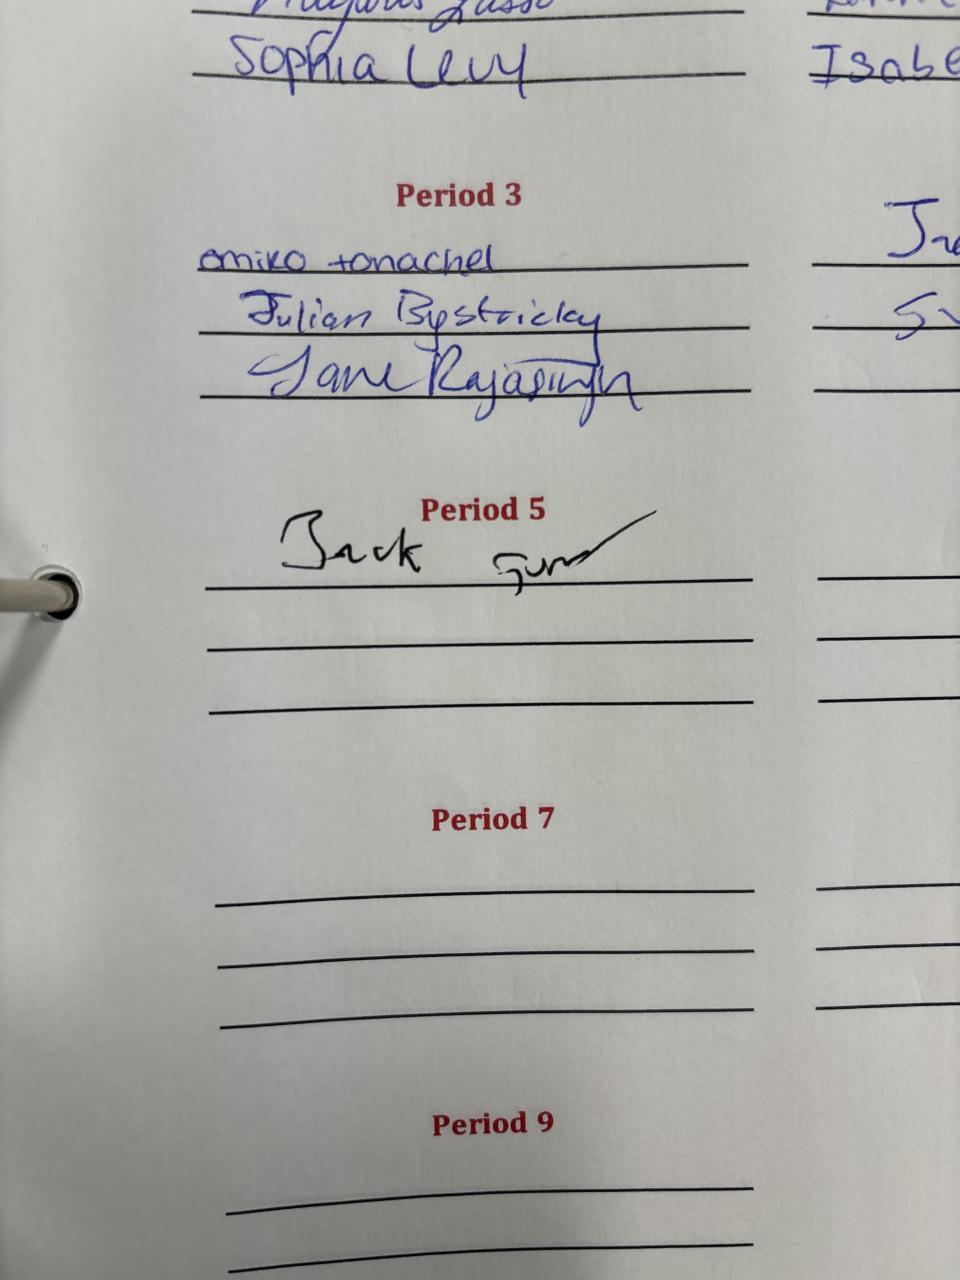 Sophia Levy
Isabe
Period 3
omiko tonachel
Julian Bystricky
Jane Rajasingh
Period 5
Jack
Period 7
Period 9